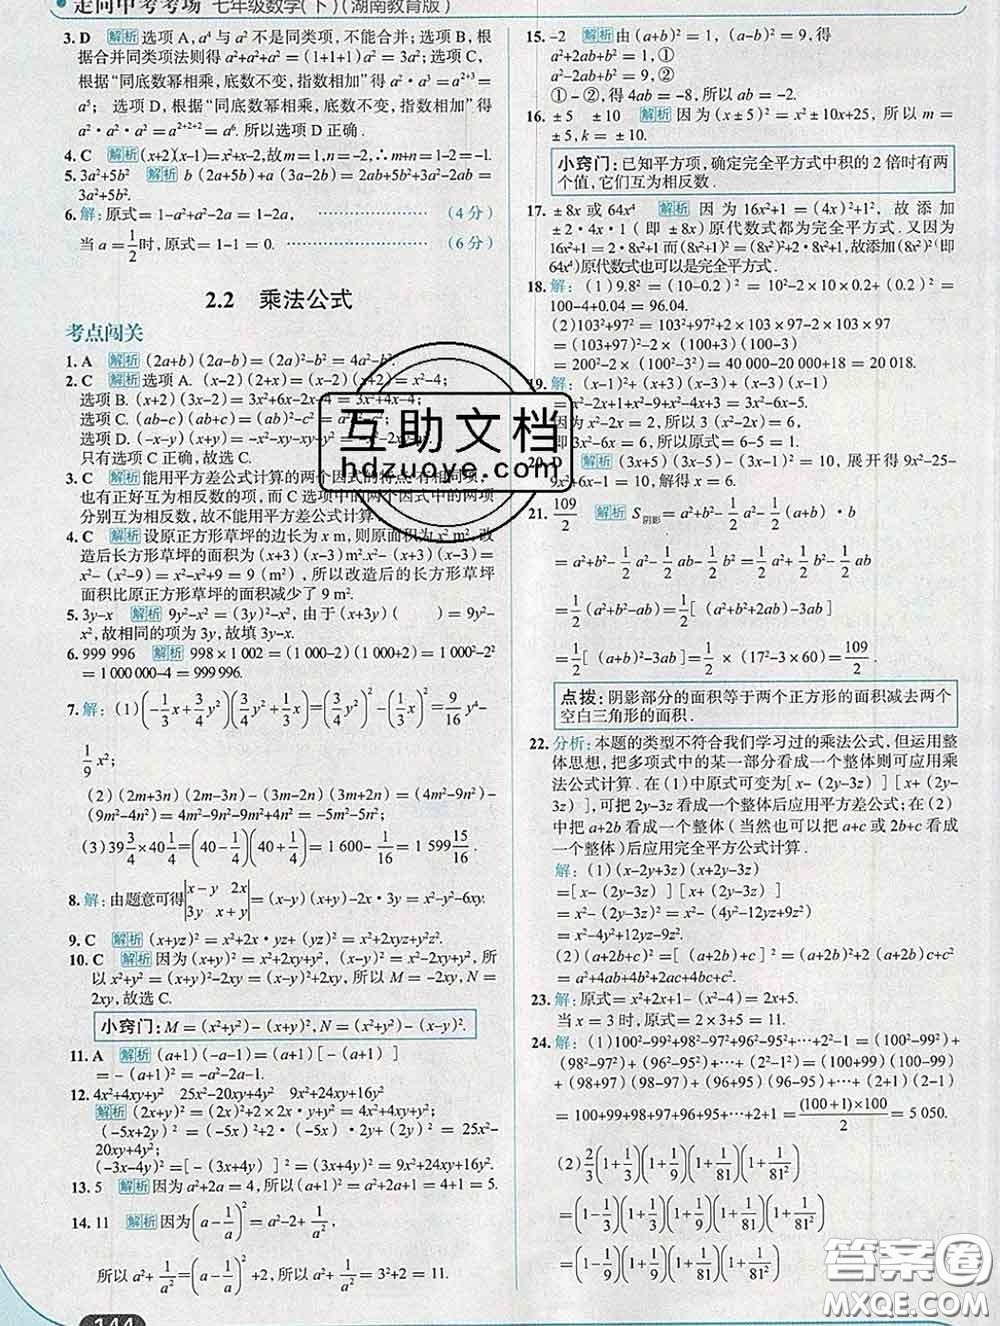 走向中考考场 七年级数学(下)(湖南教育版)
3. D 解析 选项 A, a⁴与 a² 不是同类项,不能合并;选项 B,
根据合并同类项法则得 a²+a²+a²=(1+1+1)a²=3a²;选项 C,
根据“同底数幂相乘,底数不变,指数相加”得 a²·a³=a²⁺³=
a⁵; 选项 D,根据“同底数幂相乘,底数不变,指数相加”得
a²·a²·a²=a²⁺²⁺²=a⁶. 所以选项 D 正确.
4. C 解析 (x+2)(x-1)=x²+x-2,故 m=1, n=-2,∴m+n=1-2=-1.
5. 3a²+5b² 解析 b(2a+5b)+a(3a-2b)=2ab+5b²+3a²-2ab=
3a²+5b².
6. 解:原式=1-a²+a²-2a=1-2a, ………………(4分)
当 a=1/2时,原式=1-1=0. ………………(6分)
2.2 乘法公式
考点闯关
1. A 解析 (2a+b)(2a-b)=(2a)²-b²=4a²-b².
2. C 解析 选项 A. (x-2)(2+x)=(x-2)(x+2)=x²-4;
选项 B. (x+2)(3x-2)=3x²+6x-2x-4=3x²+4x-4;
选项 C. (ab-c)(ab+c)=(ab)²-c²=a²b²-c²;
选项 D. (-x-y)(x+y)=-x²-xy-xy-y²
只有选项 C 正确,故选 C.
3. C 解析 能用平方差公式计算的两个因式的特点:有相同项,
也有正好互为相反数的项,而 C 选项中的两个因式中的两项
分别互为相反数,故不能用平方差公式计算.
4. C 解析 设原正方形草坪的边长为 x m,则原面积为 x² m²,改
造后长方形草坪的面积为(x+3)(x-3)m². x²-(x+3)(x-3)=
x²-(x²-9)=x²-x²+9=9(m²),所以改造后的长方形草坪
面积比原正方形草坪的面积减少了 9 m².
5. 3y-x 解析 9y²-x²=(3y)²-x²,由于(x+3y)( )=9y²-
x²,故相同的项为 3y,故填 3y-x.
6. 999 996 解析 998×1 002=(1 000-2)(1 000+2)=1 000²-2²
=1 000 000-4=999 996.
7. 解:(1)(-1/3x+3/4y²)(3/4y²+1/3x)=(3/4y²)²-(1/3x)²=9/16y⁴-
1/9x².
(2)(2m+3n)(2m-3n)-(2m-3n)(3m+2n)=(4m²-9n²)-
(9m²-4n²)=4m²-9n²-9m²+4n²=-5m²-5n²;
(3)39 3/4×40 1/4=(40-1/4)(40+1/4)=1 600-1/16=1 599 15/16.
8. 解:由题意可得|x-y 2x 3y x+y|=(x-y)(x+y)-2x·3y=x²-y²-6xy.
9. C 解析 (x+yz)²=x²+2x·yz+(yz)²=x²+2xyz+y²z².
10. C 解析 因为(x+y)²=x²+2xy+y²,(x-y)²=x²-2xy+y²,所
以 x²+y²=(x+y)²-2xy=(x-y)²+2xy,所以 M=-2xy, N=
2xy,故选 C.
小窍门:M=(x²+y²)-(x+y)², N=(x²+y²)-(x-y)².
11. A 解析 (a+1)(-a-1)=(a+1)[-(a+1)]
=-(a+1)²=-a²-2a-1.
12. 4x²+4xy+y² 25x²-20xy+4y² 9x²+24xy+16y²
解析 (2x+y)²=(2x)²+2×2x·y+y²=4x²+4xy+y²;
(-5x+2y)²=(-5x)²+2·(-5x)·(2y)+(2y)²=25x²-
20xy+4y²;
(-3x-4y)²=[-(3x+4y)]²=(3x+4y)²=9x²+24xy+16y².
13. 5 解析 因为 a²+2a=4,所以(a+1)²=a²+2a+1=4+1=5.
14. 11 解析 因为(a-1/a)²=a²-2+1/a²,
所以 a²+1/a²=(a-1/a)²+2,所以 a²+1/a²=3²+2=11.
144
15. -2 解析 由(a+b)²=1, (a-b)²=9,得
a²+2ab+b²=1,①
a²-2ab+b²=9,②
①-②,得 4ab=-8,所以 ab=-2.
16. ±5 ±10 解析 因为(x±5)²=x²±10x+25,所以 m=
±5, k=±10.
小窍门:已知平方项,确定完全平方式中积的 2 倍时有两
个值,它们互为相反数.
17. ±8x或 64x⁴ 解析 因为 16x²+1=(4x)²+1²,故添加
±2·4x·1(即 ±8x)原代数式都为完全平方式. 又因为
16x²+1=2·8x²+1而(8x²+1)²=(8x²)²+2·8x²+1,故添加(8x²)²(即
64x⁴)原代数式也可以是完全平方式.
18. 解:(1)9.8²=(10-0.2)²=10²-2×10×0.2+(0.2)²=
100-4+0.04=96.04.
(2)103²+97²=103²+97²+2×103×97-2×103×97=
(103+97)²-2×(100+3)×(100-3)=
200²-2×(100²-3²)=40 000-20 000+18=20 018.
19. 解:(x-1)²+(x+3)(x-3)+(x-3)(x-1)
=x²-2x+1+x²-9+x²-4x+3=3x²-6x-5.
因为 x²-2x=2,所以原式=3(x²-2x)-5=6-5=1.
20. D 解析 (3x+5)(3x-5)-(3x-1)²=10,展开得 9x²-25-
9x²+6x-1=10,解得 x=6.
21. 109/2 解析 S阴影=a²+b²-1/2a²-1/2(a+b)·b
=a²+b²-1/2a²-1/2ab-1/2b²=1/2a²+1/2b²-1/2ab
=1/2(a²+b²-ab)=1/2[(a²+b²+2ab)-3ab]
=1/2[(a+b)²-3ab]=1/2×(17²-3×60)=109/2.
点拨:阴影部分的面积等于两个正方形的面积减去两个
空白三角形的面积.
22. 分析:本题的类型不符合我们学习过的乘法公式,但运用整
体思想,把多项式中的某一部分看成一个整体则可应用乘
法公式计算. 在(1)中原式可变为[x-(2y-3z)][x+(2y-
3z)],可把 2y-3z 看成一个整体后应用平方差公式;在(2)
中把 a+2b 看成一个整体(当然也可以把 a+c 或 2b+c 看成
一个整体)后应用完全平方公式计算.
解:(1)(x-2y+3z)(x+2y-3z)
=[x-(2y-3z)][x+(2y-3z)]
=x²-(2y-3z)²=x²-(4y²-12yz+9z²)
=x²-4y²+12yz-9z²;
(2)(a+2b+c)²=[(a+2b)+c]²=(a+2b)²+2(a+2b)c+c²
=a²+4ab+4b²+2ac+4bc+c².
23. 解:原式=x²+2x+1-(x²-4)=2x+5.
当 x=3 时,原式=2×3+5=11.
24. 解:(1)100²-99²+98²-97²+96²-95²+…+2²-1=(100²-99²)+
(98²-97²)+(96²-95²)+…+(2²-1²)=(100+99)(100-99)
+(98+97)(98-97)+(96+95)(96-95)+…+(2+1)(2-1)
=100+99+98+97+96+95+…+2+1=(100+1)×100/2=5 050.
(2)2/3(1+1/3)(1+1/9)(1+1/81)(1+1/81²)
=(1-1/3)(1+1/3)(1+1/9)(1+1/81)(1+1/81²)
=(1-1/9)(1+1/9)(1+1/81)(1+1/81²)
互助文档
hdzuoye.com
答案圈
MXQE.COM